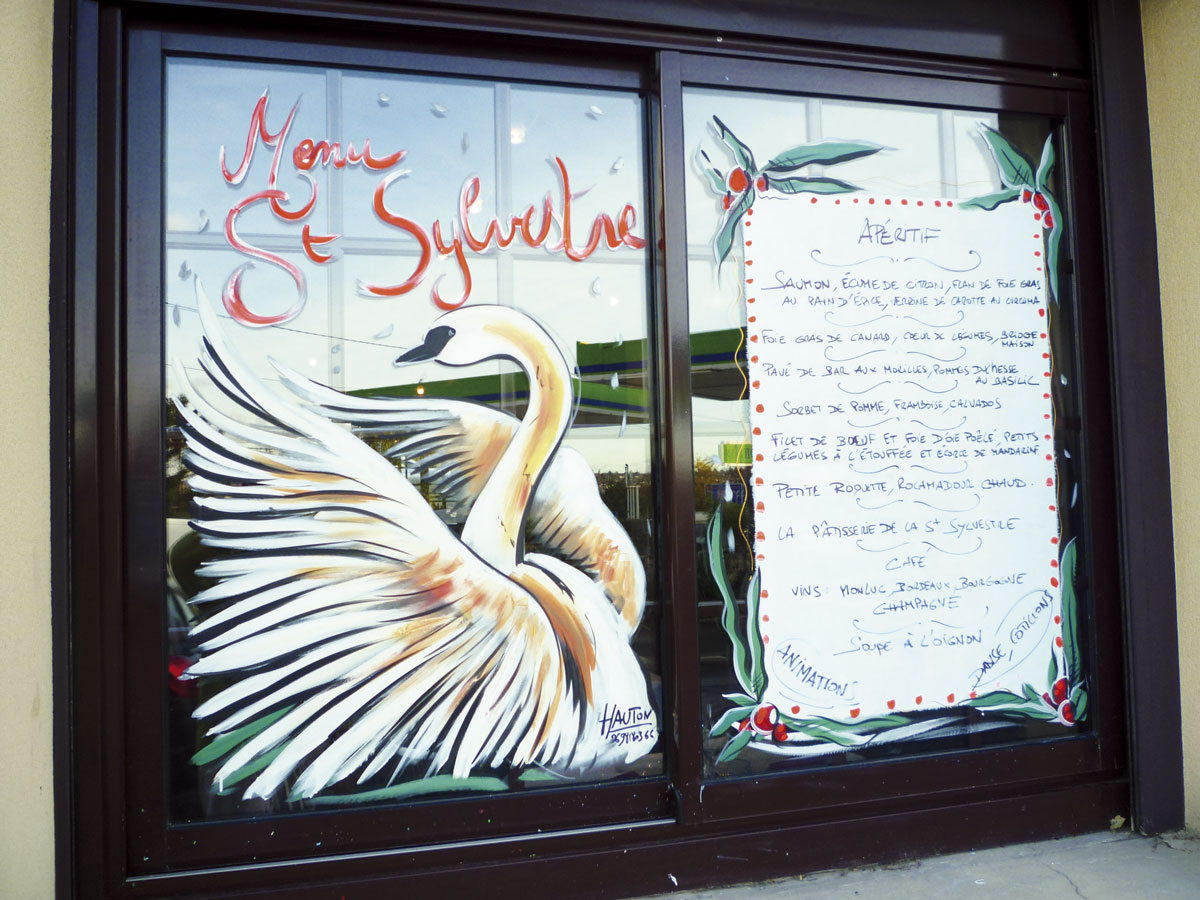 Menu
St Sylvestre
HAUTON
APÉRITIF
SAUMON, ÉCUME DE CITRON, FLAN DE FOIE GRAS
AU PAIN D'ÉPICE, VERRINE DE CAROTTE AU CURCUMA
FOIE GRAS DE CANARD, COEUR DE LÉGUMES, BRIOCHE
MAISON
PAVÉ DE BAR AUX MORILLES, POMMES DUCHESSE
AU BASILIC
SORBET DE POMME, FRAMBOISE, CALVADOS
FILET DE BOEUF ET FOIE D'OIE POÊLÉ, PETITS
LÉGUMES À L'ÉTOUFFÉE ET ÉCORCE DE MANDARINE
PETITE ROQUETTE, ROCAMADOUR CHAUD.
LA PÂTISSERIE DE LA St SYLVESTRE
CAFÉ
VINS: MONLUC, BORDEAUX, BOURGOGNE
CHAMPAGNE
SOUPE À L'OIGNON
ANIMATIONS
DANSE, COTILLONS